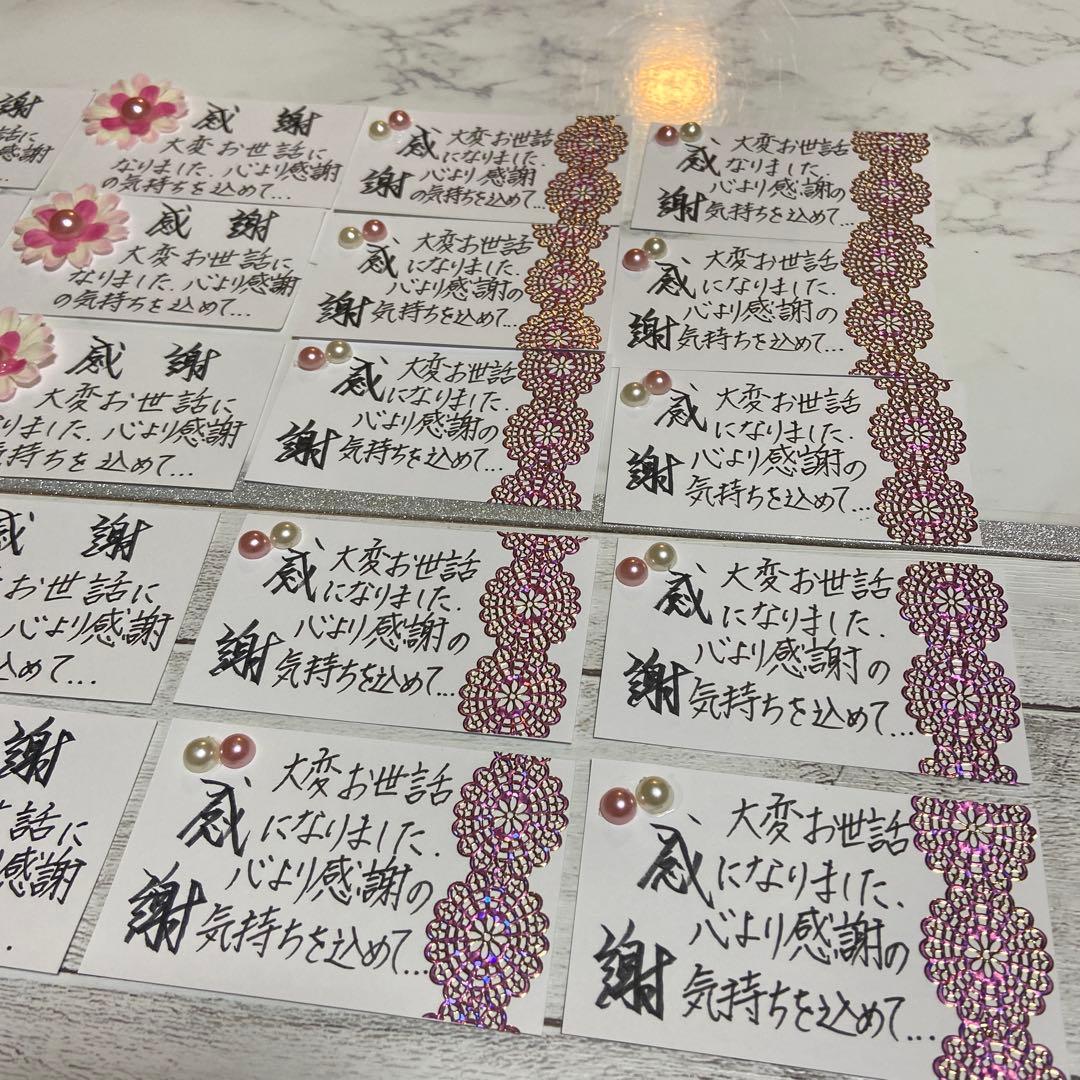 謝
に
感謝
感 謝
大変お世話に
なりました.心より感謝
の気持ちを込めて...
感謝
大変お世話
になりました.
心より感謝
の気持ちを込めて...
感謝
大変お世話
なりました.
心より感謝の
気持ちを込めて...
感 謝
大変お世話に
なりました.心より感謝
の気持ちを込めて...
感謝
大変お世話
になりました.
心より感謝の
気持ちを込めて...
感謝
大変お世話
になりました.
心より感謝の
気持ちを込めて...
感 謝
大変お世話に
ました.心より感謝
気持ちを込めて...
感謝
大変お世話
になりました.
心より感謝の
気持ちを込めて...
感謝
大変お世話
になりました.
心より感謝の
気持ちを込めて...
感 謝
お世話に
心より感謝
込めて...
感謝
大変お世話
になりました.
心より感謝の
気持ちを込めて...
感謝
大変お世話
になりました.
心より感謝の
気持ちを込めて...
謝
世話に
感謝
感謝
大変お世話
になりました.
心より感謝の
気持ちを込めて...
感謝
大変お世話
になりました.
心より感謝の
気持ちを込めて...